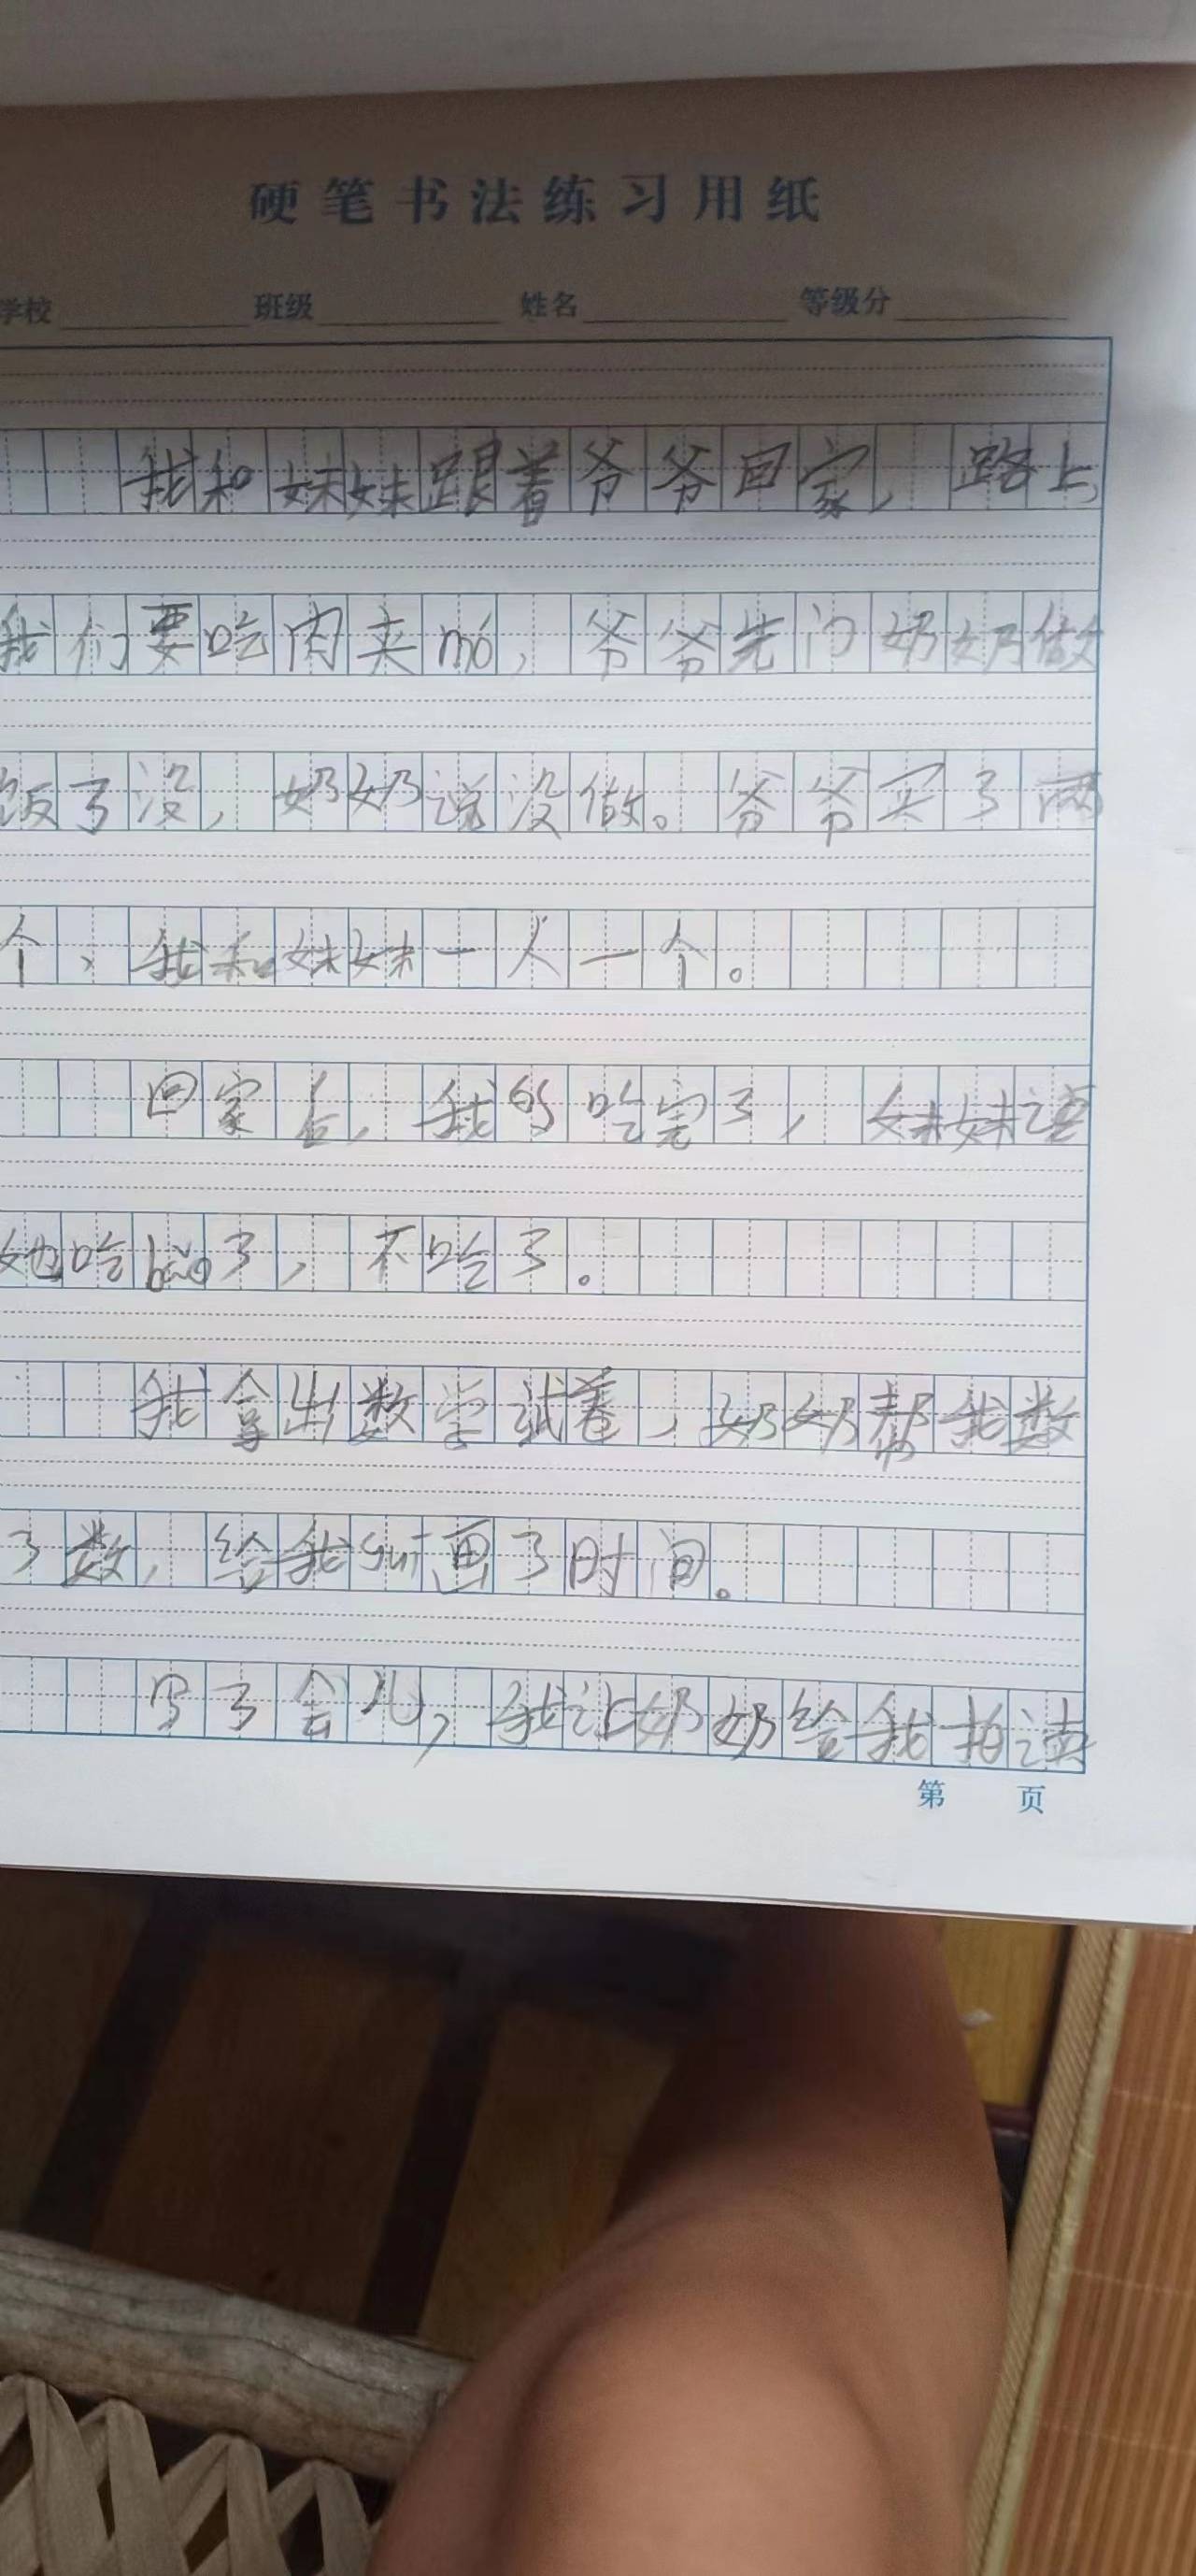 硬笔书法练习用纸
学校 班级 姓名 等级分
我和妹妹跟着爷爷回家，路上，
我们要吃肉夹mó，爷爷先问奶奶做
饭了没，奶奶说没做。爷爷买了两
个，我和妹妹一人一个。
回家后，我的吃完了，妹妹说
她吃bǎo了，不吃了。
我拿出数学试卷，奶奶帮我数
了数，给我画了时间。
写了会儿，我让奶奶给我拍读
第 页